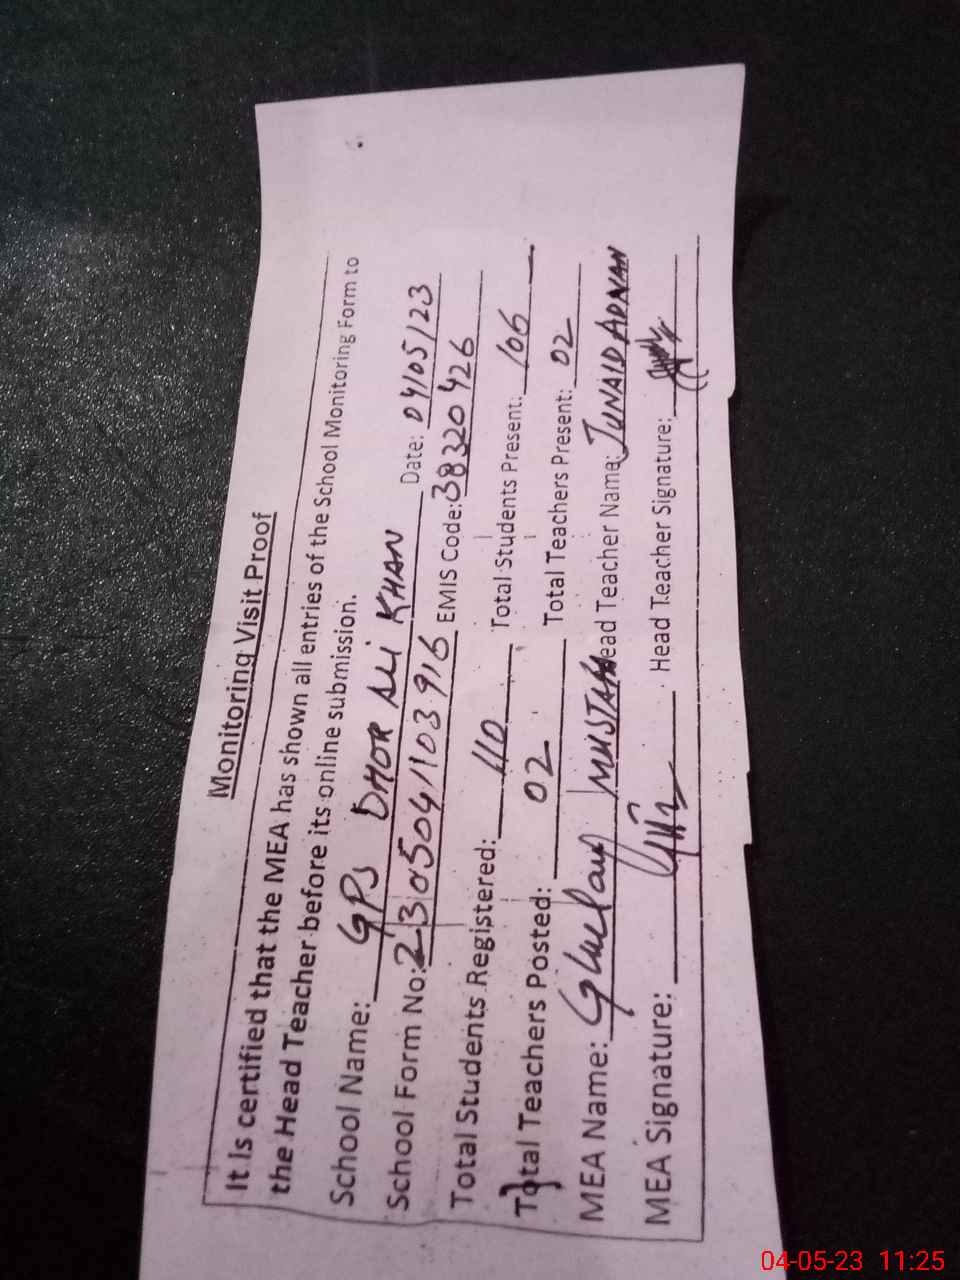 Monitoring Visit Proof
It Is certified that the MEA has shown all entries of the School Monitoring Form to
the Head Teacher before its online submission.
School Name: GPS DHOR ALI KHAN Date: 04/05/23
School Form No: 2305041103916 EMIS Code: 38320426
Total Students Registered: 110 Total Students Present: 106
Total Teachers Posted: 02 Total Teachers Present: 02
MEA Name: Ghulam MUSTAFA Head Teacher Name: JUNAID ADNAN
MEA Signature: Head Teacher Signature:
04-05-23 11:25